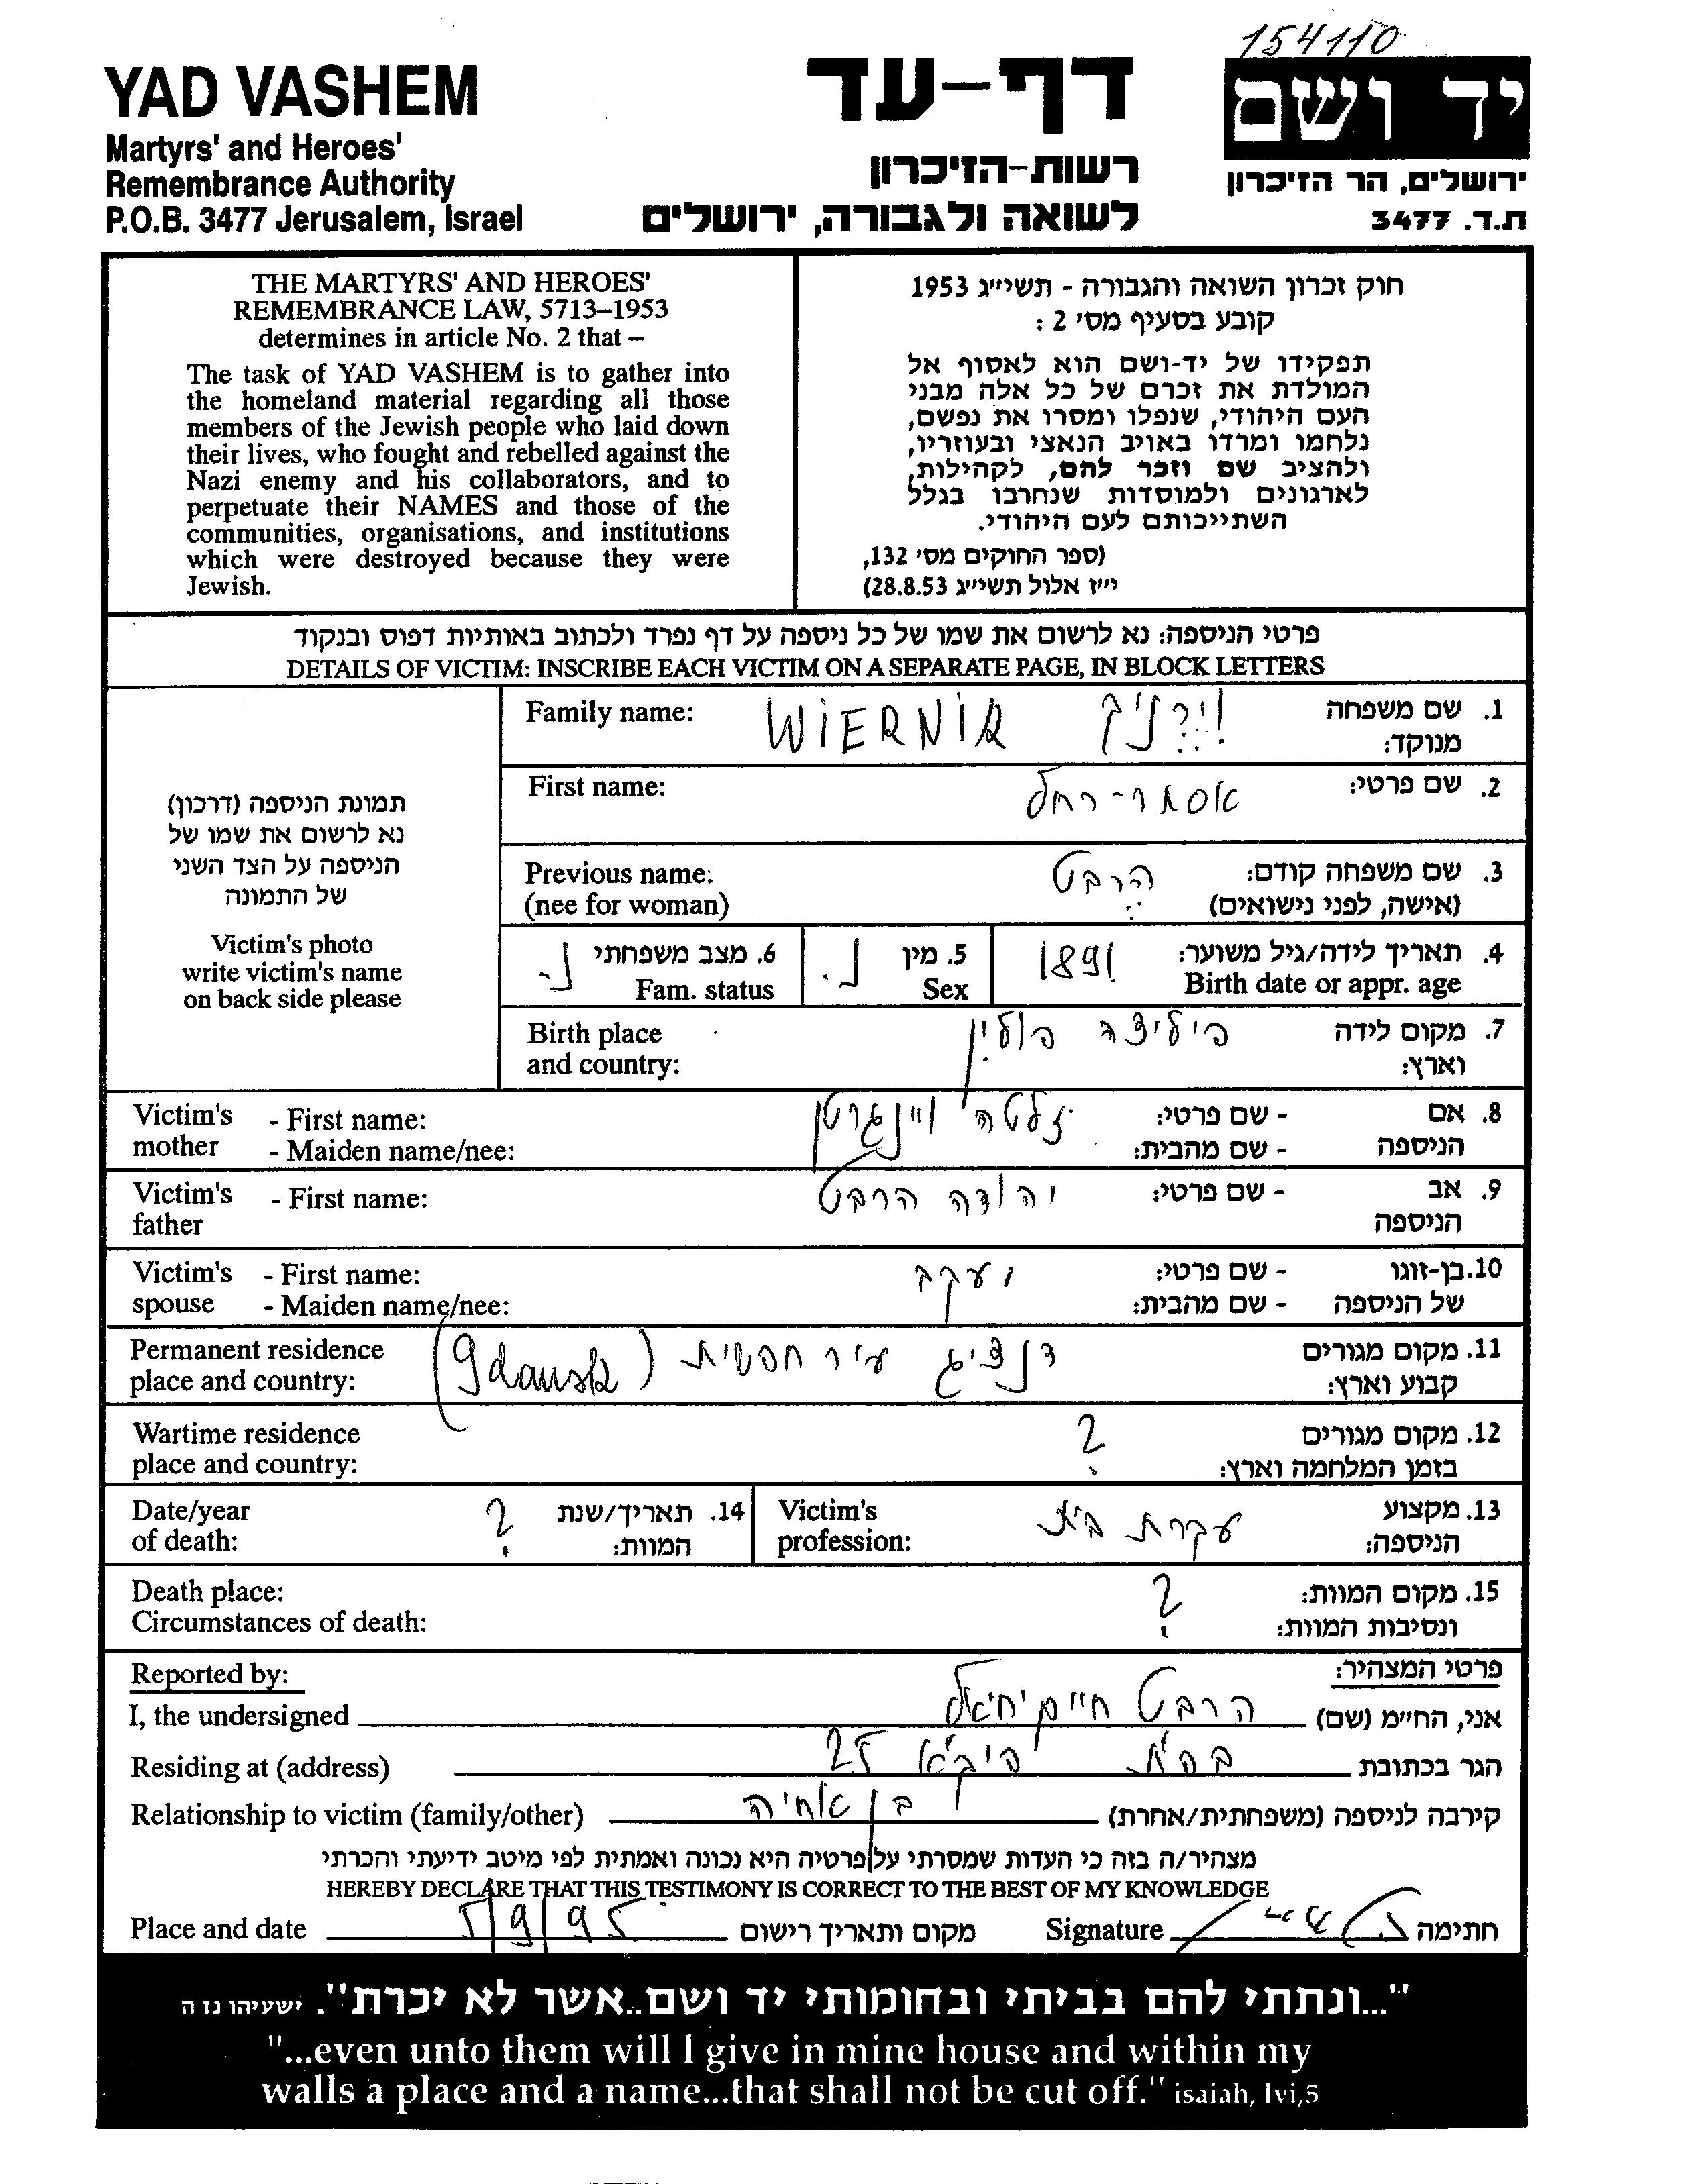 154110
YAD VASHEM
Martyrs' and Heroes'
Remembrance Authority
P.O.B. 3477 Jerusalem, Israel
דף-עד
רשות-הזיכרון
לשואה ולגבורה, ירושלים
יד ושם
ירושלים, הר הזיכרון
ת.ד. 3477
THE MARTYRS' AND HEROES'
REMEMBRANCE LAW, 5713–1953
determines in article No. 2 that –
The task of YAD VASHEM is to gather into
the homeland material regarding all those
members of the Jewish people who laid down
their lives, who fought and rebelled against the
Nazi enemy and his collaborators, and to
perpetuate their NAMES and those of the
communities, organisations, and institutions
which were destroyed because they were
Jewish.
חוק זכרון השואה והגבורה - תשי״ג 1953
קובע בסעיף מס׳ 2 :
תפקידו של יד-ושם הוא לאסוף אל
המולדת את זכרם של כל אלה מבני
העם היהודי, שנפלו ומסרו את נפשם,
נלחמו ומרדו באויב הנאצי ובעוזריו,
ולהציב שם וזכר להם, לקהילות,
לארגונים ולמוסדות שנחרבו בגלל
השתייכותם לעם היהודי.
(ספר החוקים מס׳ 132,
י״ז אלול תשי״ג 28.8.53)
פרטי הניספה: נא לרשום את שמו של כל ניספה על דף נפרד ולכתוב באותיות דפוס ובנקוד
DETAILS OF VICTIM: INSCRIBE EACH VICTIM ON A SEPARATE PAGE, IN BLOCK LETTERS
תמונת הניספה (דרכון)
נא לרשום את שמו של
הניספה על הצד השני
של התמונה
Victim's photo
write victim's name
on back side please
Family name: WIERNIK וִיֶרְנִיק 1. שם משפחה
מנוקד:
First name: אסתר-רחל 2. שם פרטי:
Previous name: הרבט 3. שם משפחה קודם:
(nee for woman) (אישה, לפני נישואים)
נ. 6. מצב משפחתי נ. 5. מין 1891 4. תאריך לידה/גיל משוער:
Fam. status Sex Birth date or appr. age
Birth place פולין 7. מקום לידה
and country: וארץ:
Victim's - First name: זלטה ויינגרטן - שם פרטי: 8. אם
mother - Maiden name/nee: - שם מהבית: הניספה
Victim's - First name: יהודה הרבט - שם פרטי: 9. אב
father הניספה
Victim's - First name: יעקב - שם פרטי: 10. בן-זוגו
spouse - Maiden name/nee: - שם מהבית: של הניספה
Permanent residence דנציג עיר חפשית (Gdansk) 11. מקום מגורים
place and country: קבוע וארץ:
Wartime residence ? 12. מקום מגורים
place and country: בזמן המלחמה וארץ:
Date/year ? 14. תאריך/שנת Victim's עקרת בית 13. מקצוע
of death: המוות: profession: הניספה:
Death place: ? 15. מקום המוות:
Circumstances of death: ונסיבות המוות:
Reported by: פרטי המצהיר:
I, the undersigned הרבט חיים יחיאל אני, החי״מ (שם)
Residing at (address) 25 הגר בכתובת
Relationship to victim (family/other) בן אחיה קירבה לניספה (משפחתית/אחרת)
מצהיר/ה בזה כי העדות שמסרתי על פרטיה היא נכונה ואמתית לפי מיטב ידיעתי והכרתי
HEREBY DECLARE THAT THIS TESTIMONY IS CORRECT TO THE BEST OF MY KNOWLEDGE
Place and date 5/9/95 מקום ותאריך רישום Signature חתימה
"...ונתתי להם בביתי ובחומותי יד ושם..אשר לא יכרת". ישעיהו נו ה
"...even unto them will I give in mine house and within my
walls a place and a name...that shall not be cut off." isaiah, lvi,5